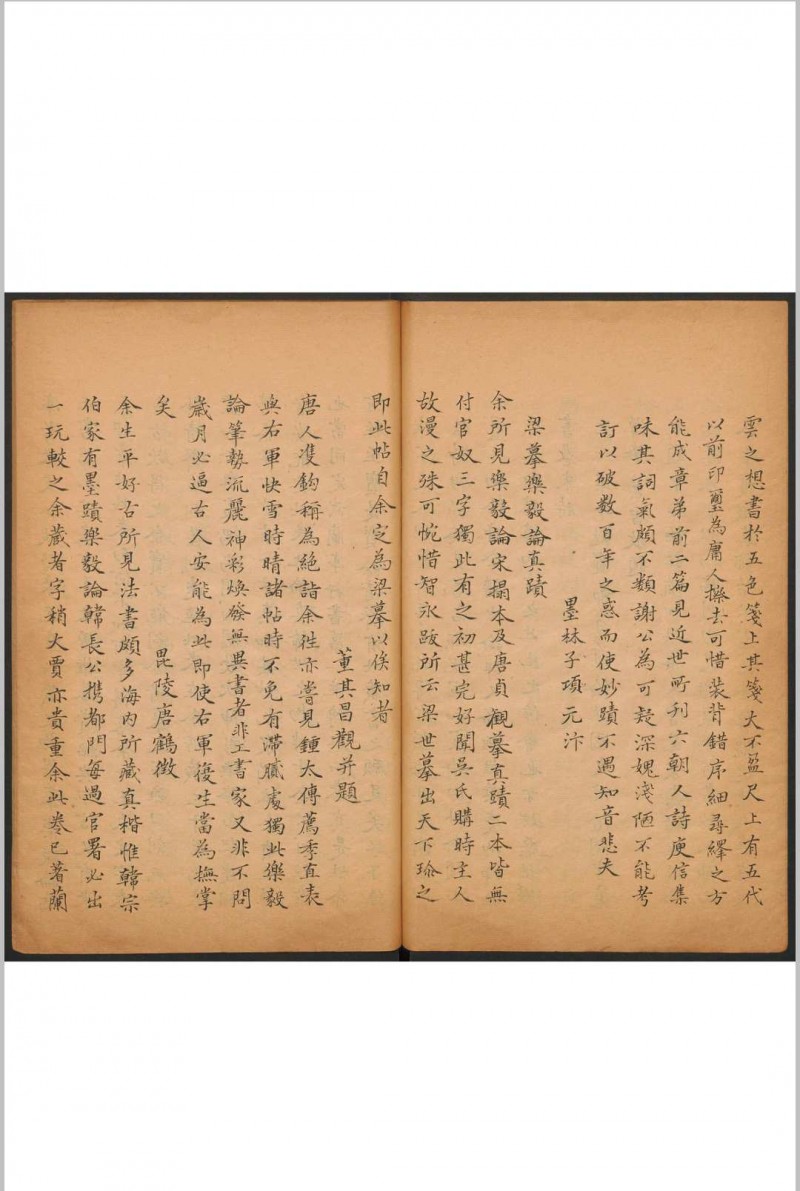 雲之想書於五色箋上其箋大不盈尺上有五代
以前印璽為庸人擦去可惜裝背錯序細尋繹之方
能成章弟前二篇見近世所刊六朝人詩庾信集
味其詞氣頗不類謝公為可疑深媿淺陋不能考
訂以破數百年之惑而使妙蹟不遇知音悲夫
墨林子項元汴
梁摹樂毅論真蹟
余所見樂毅論宋搨本及唐貞觀摹真蹟二本皆無
付官奴三字獨此有之初甚完好聞吳氏購時主人
故漫之殊可惋惜智永跋所云梁世摹出天下珍之
即此帖自余定為梁摹以俟知者
董其昌觀并題
唐人雙鉤稱為絕詣余徃亦嘗見鍾太傅薦季直表
與右軍快雪時晴諸帖時不免有滯膩處獨此樂毅
論筆勢流麗神彩煥發無異書者非工書家又非不問
歲月必逼右人安能為此即使右軍復生當為撫掌
矣
毘陵唐鶴徵
余生平好古所見法書頗多海內所藏真楷惟韓宗
伯家有墨蹟樂毅論韓長公携都門每過官署必出
一玩較之余藏者字稍大賈亦貴重余此卷已著蘭